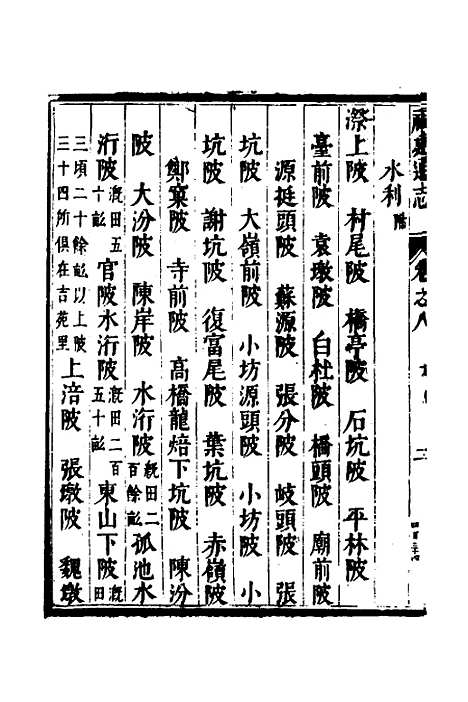 水利
漈上陂　村尾陂　橋亭陂　石坑陂　平林陂
臺前陂　袁墩陂　白杜陂　橋頭陂　廟前陂
源挺頭陂　蘇源陂　張分陂　岐頭陂　張
坑陂　大嶺前陂　小坊源頭陂　小坊陂　小
坑陂　謝坑陂　復富尾陂　葉坑陂　赤嶺陂
鄭窠陂　寺前陂　高橋龍焙下坑陂　陳汾
陂　大汾陂　陳岸陂　水洐陂溉田二百餘畝孤池水
洐陂溉田五十畝官陂水洐陂溉田二百五十畝東山下陂溉田
三頃二十餘畝以上陂三十四所俱在吉苑里上涪陂　張墩陂　魏墩
通志
卷之八